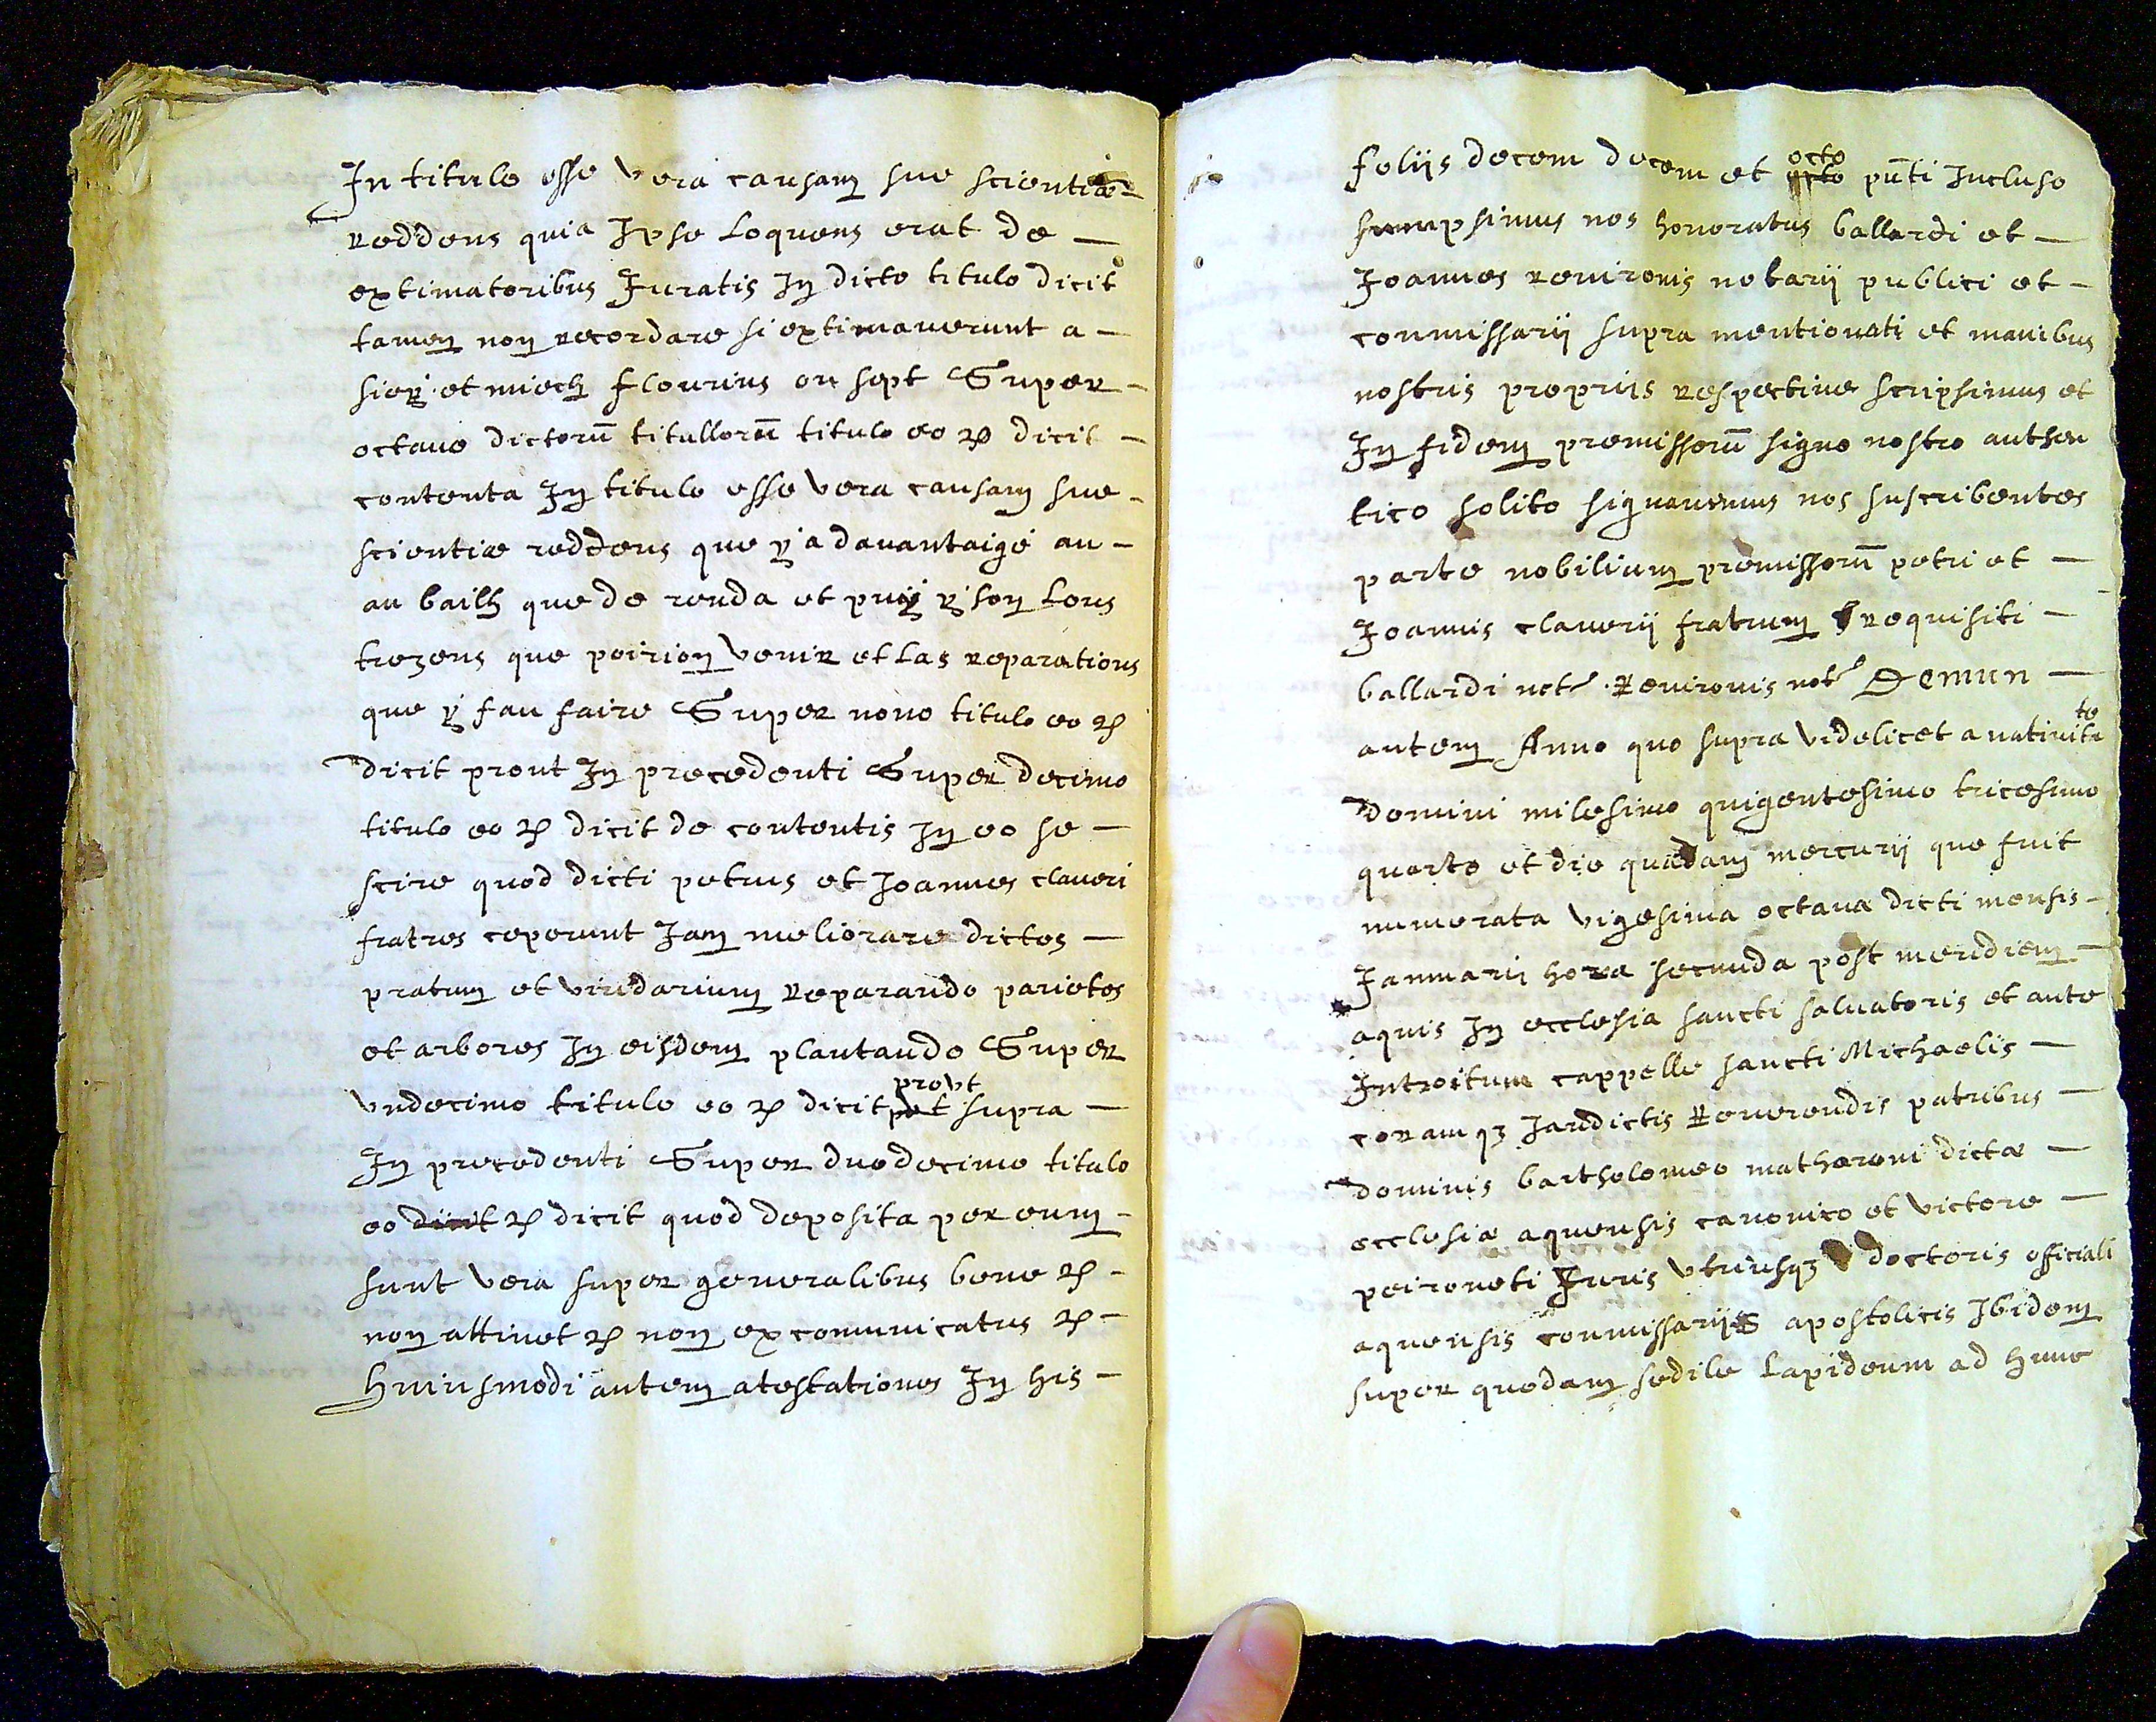 In titulo esse vera causam sue scientiæ –
reddens quia Ipse loquens erat de –
extimatoribus Juratis In dicto titulo dicit
tamen non recordare si extimaverunt a –
sieys et miech flourins ou sept Super –
octavo dictorū titullorū titulo eo etc dicit –
contenta In titulo esse vera causam sue –
scientiæ reddens que y a davantaige au –
au bailh que de renda et puis y son lous
trezens que poirion venir et las reparations
que y fau faire Super nono titulo eo etc
dicit prout In precedenti Super decimo
titulo eo etc dicit de contentis In eo se –
scire quod dicti petrus et Joannes claveri
fratres ceperunt Jam meliorare dictos –
pratum et viridarium reparando parietes
et arbores In eisdem plantando Super
undecimo titulo eo etc dicit prout supra –
In precedenti Super duodecimo titulo
eo dicit etc dicit quod deposita per eum –
sunt vera super generalibus bene etc –
non attinet etc non excomunicatus etc –
Huiusmodi autem atestationes In his –
foliis decem decem et octo pūti Incluso
sumpsimus nos honoratus ballardi et –
Joannes renironis notarij publici et –
commissarij supra mentionati et manibus
nostris proprijs respective scripsimus et
In fidem premissorū signo nostro authen
tico solito signavimus nos suscribentes
parte nobilium premissorū petri et –
Joannis claverij fratrum requisiti –
ballardi not. Renironis not. Demun –
autem Anno quo supra videlicet a nativitate
domini milesimo quigentesimo tricesimo
quarto et die quadam mercurij que fuit
numerata vigesima octava dicti mensis –
Januarij hora secunda post meridiem –
aquis In ecclesia sancti salvatoris et ante
Introitum cappelle sancti Michaelis –
coramq3 Jandictis Reverendis patribus –
dominis bartholomeo matheroni dictæ –
ecclesiæ aquensis canonico et victore –
peironeti Juris utriusq3 doctoris officiali
aquensis commissarijs apostolicis Ibidem
super quodam sedile lapideum ad hunc